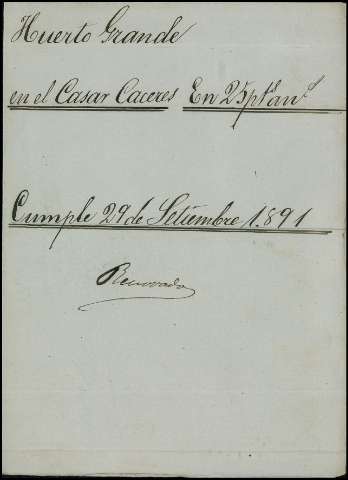 Huerto Grande
en el Casar Caceres En 25 pts an.s
Cumple 29 de Setiembre 1.891
Renovado